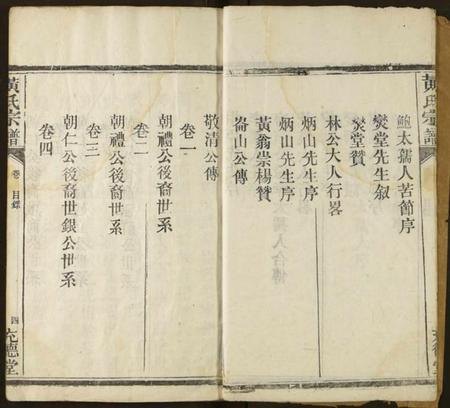 黃氏宗譜
鮑太孺人苦節序
熒堂先生叙
熒堂贊
林公大人行畧
炳山先生序
炳山先生序
黃翁崇楊贊
崙山公傳
敬清公傳
卷一
朝禮公後裔世系
卷二
朝禮公後裔世系
卷三
朝仁公後裔世銀公世系
卷四
黃氏宗譜
卷
目錄
四
允德堂